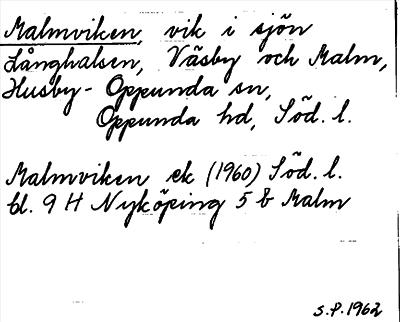 Malmviken, vik i sjön
Långhalsen, Väsby och Malm,
Husby-Oppunda sn,
Oppunda hd, Söd. l.
Malmviken ek (1960) Söd. l.
bl. 9 H Nyköping 5 b Malm
S.P. 1962